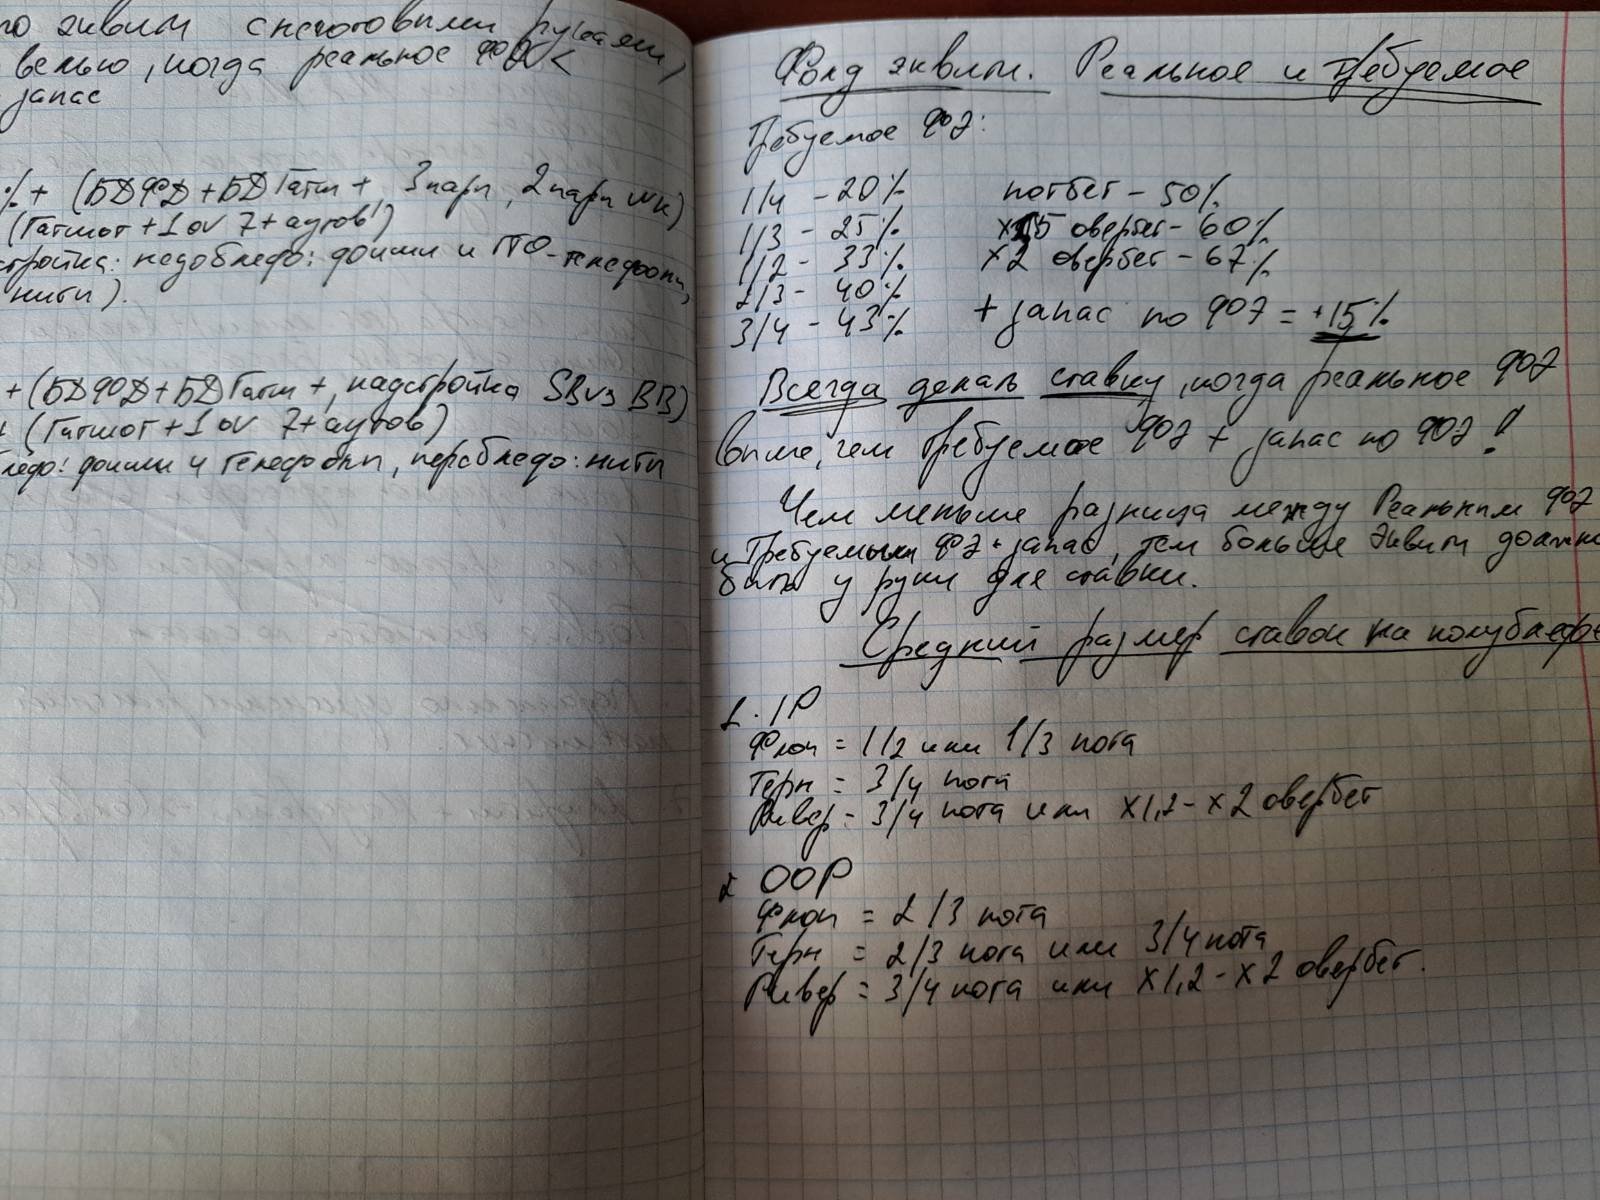 эквити с неготовыми руками)
, когда реальное ФОЛ <
запас
%+ (БДФД + БДГатш +, 3 пары, 2 пары wk)
(Гатшот + 1 ov 7+ аутов)
: недоблефо: донки и ПО-телефоны,
ниты).
+ (БДФД + БДГатш +, надстройка SB vs BB)
+ (Гатшот + 1 ov 7+ аутов)
: донки и телефоны, переблефо: ниты
Фолд эквити. Реальное и требуемое
Требуемое ФОЭ:
1/4 - 20%
1/3 - 25%
1/2 - 33%
2/3 - 40%
3/4 - 43%
потбет - 50%
x1,5 овербет - 60%
x2 овербет - 67%
+ запас по ФОЭ = +15%
Всегда делать ставку, когда реальное ФОЭ
выше, чем требуемое ФОЭ + запас по ФОЭ!
Чем меньше разница между Реальным ФОЭ
и Требуемым ФЭ + запас, тем больше эквити должно
быть у руки для ставки.
Средний размер ставок на полублефы
1. IP
Флоп = 1/2 или 1/3 пота
Терн = 3/4 пота
Ривер = 3/4 пота или x1,2 - x2 овербет
2 OOP
Флоп = 2/3 пота
Терн = 2/3 пота или 3/4 пота
Ривер = 3/4 пота или x1,2 - x2 овербет.